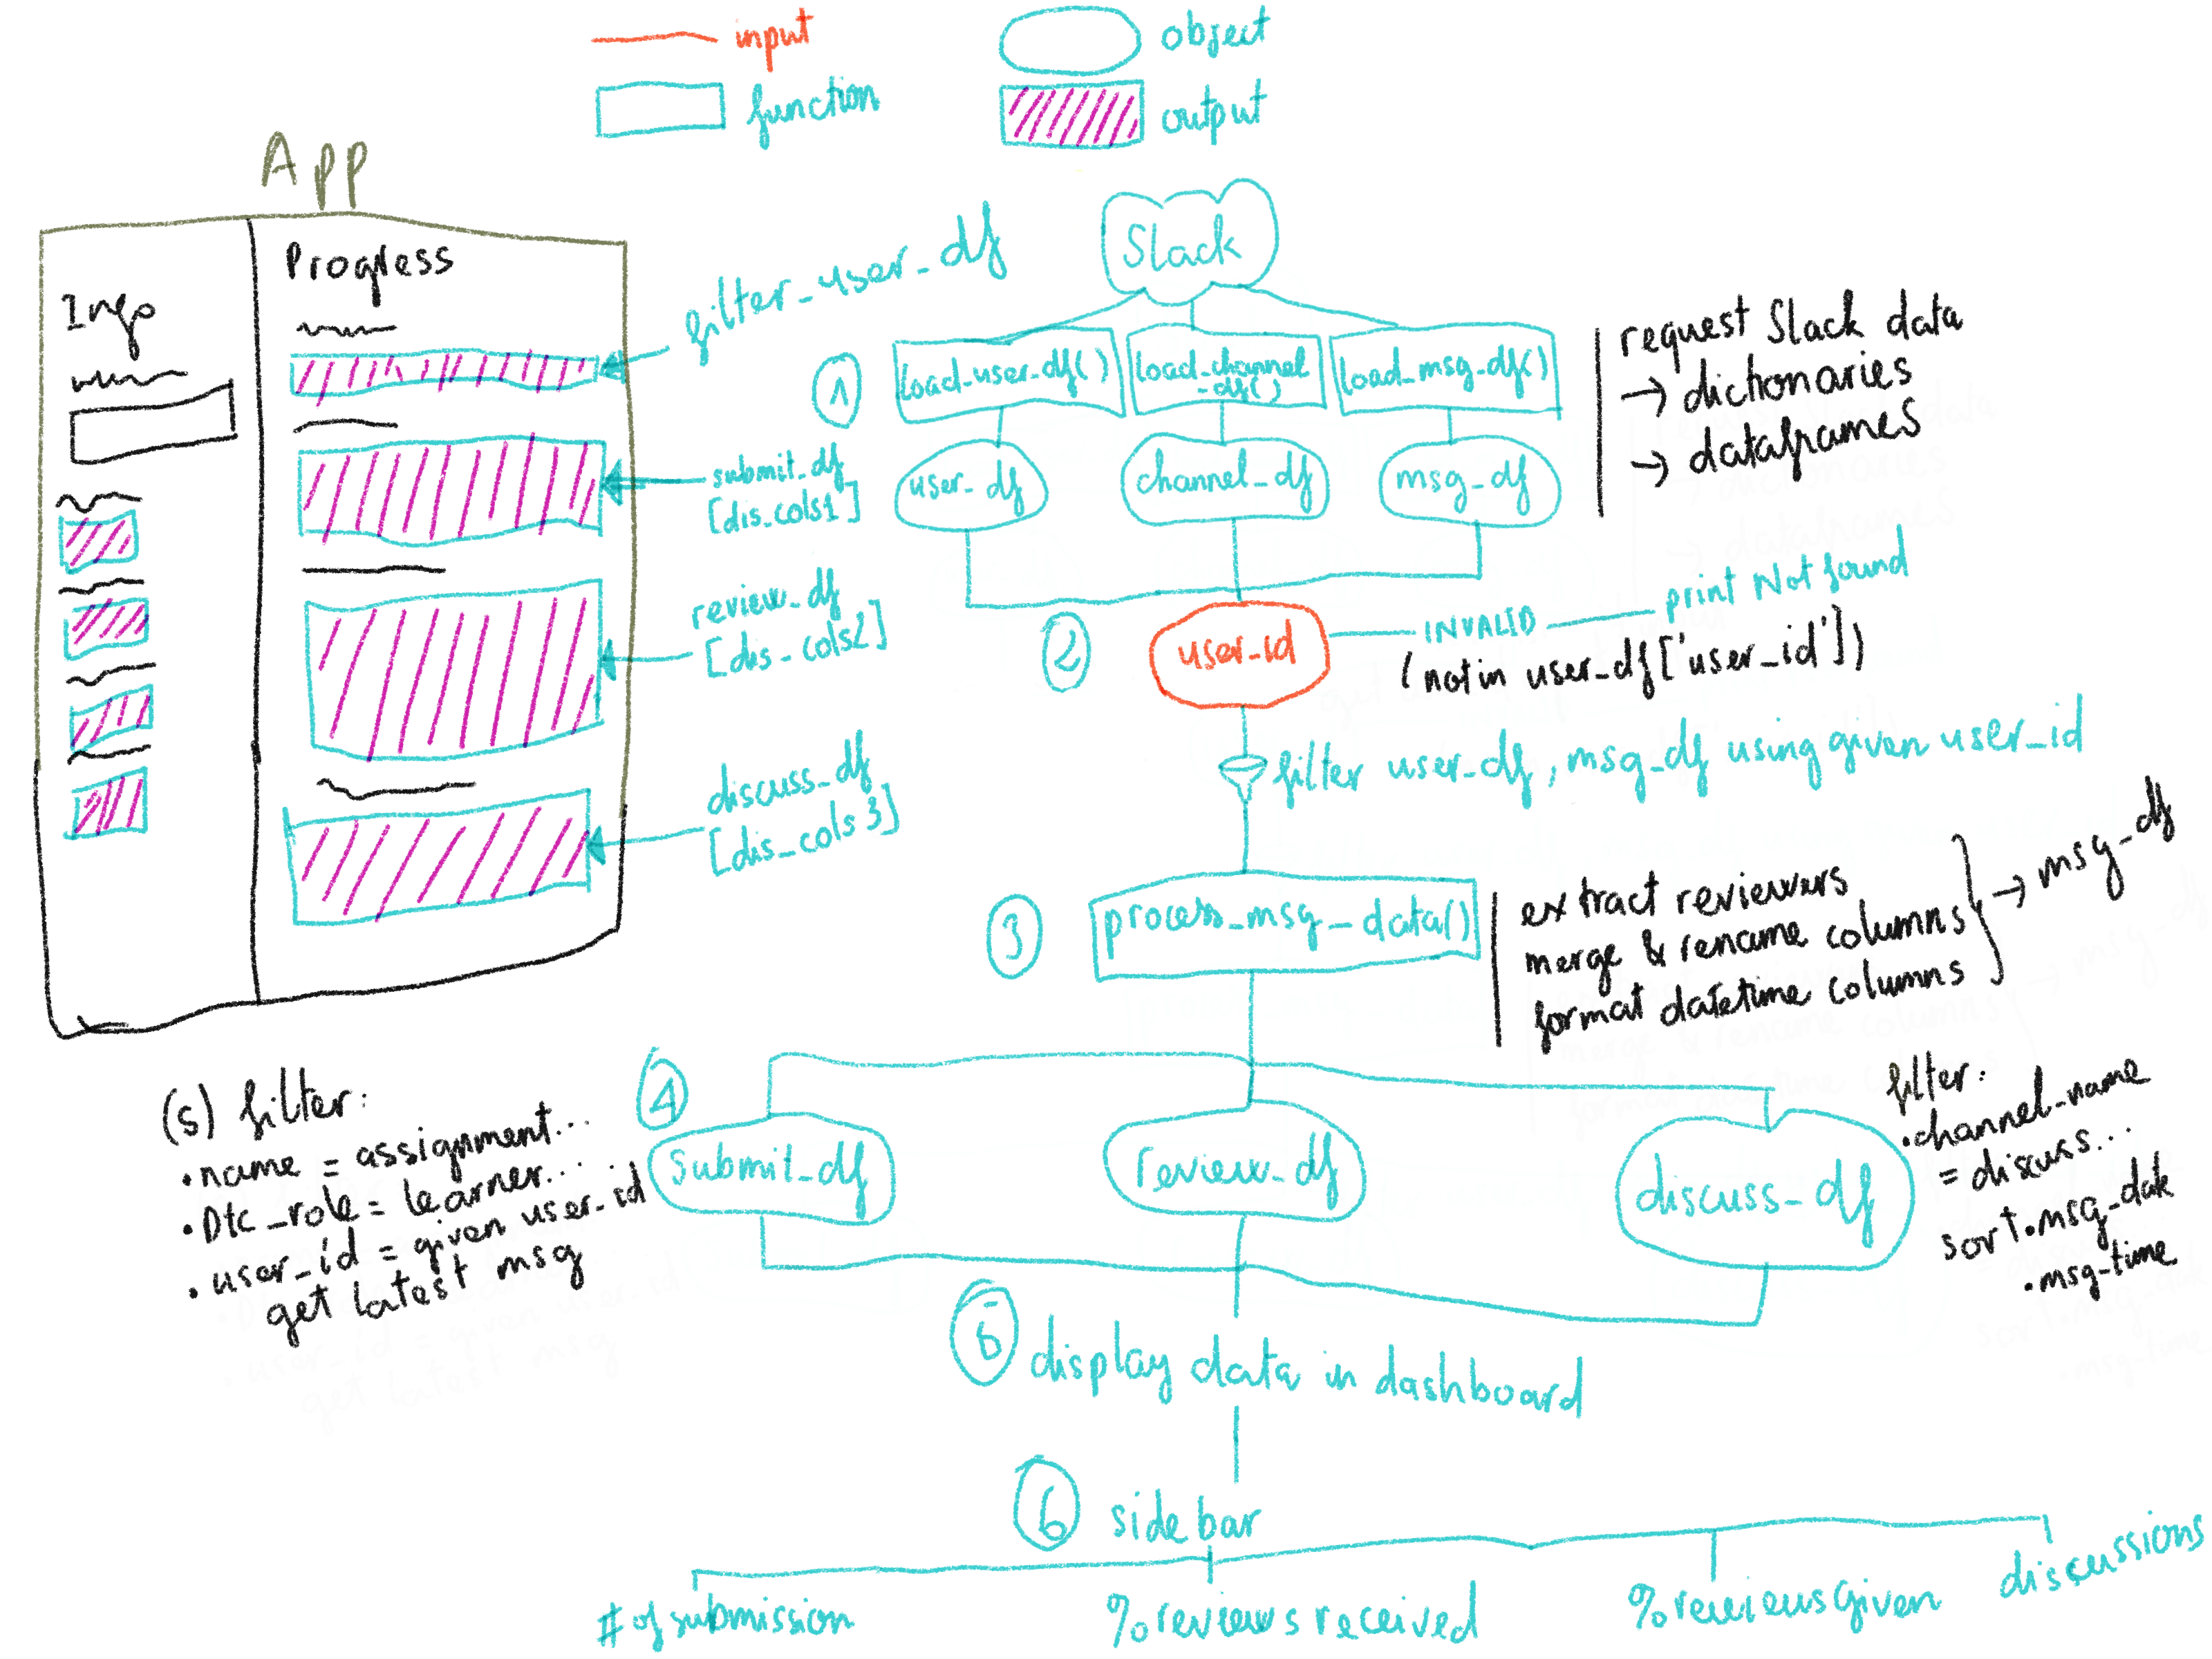 input
object
function
output
App
Info
Progress
filter_user_df
submit_df
[dis_cols1]
review_df
[dis_cols2]
discuss_df
[dis_cols3]
Slack
1
load_user_df()
load_channel
_df()
load_msg_df()
request Slack data
→ dictionaries
→ dataframes
user_df
channel_df
msg_df
2
user_id
INVALID
print Not found
(not in user_df['user_id'])
filter user_df, msg_df using given user_id
3
process_msg_data()
extract reviewers
merge & rename columns
format datetime columns
→ msg_df
4
submit_df
review_df
discuss_df
(s) filter:
• name = assignment...
• Dtc_role = learner...
• user_id = given user_id
get latest msg
filter:
• channel_name
= discuss...
sort • msg_date
• msg_time
5
display data in dashboard
6
sidebar
# of submission
% reviews received
% reviews given
discussions